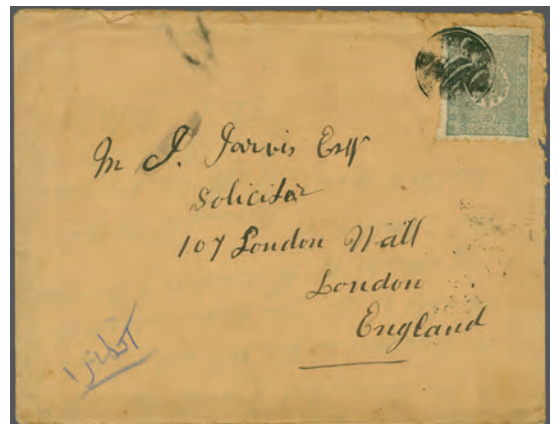 M J. Jarvis Esqr
Solicitor
107 London Wall
London
England